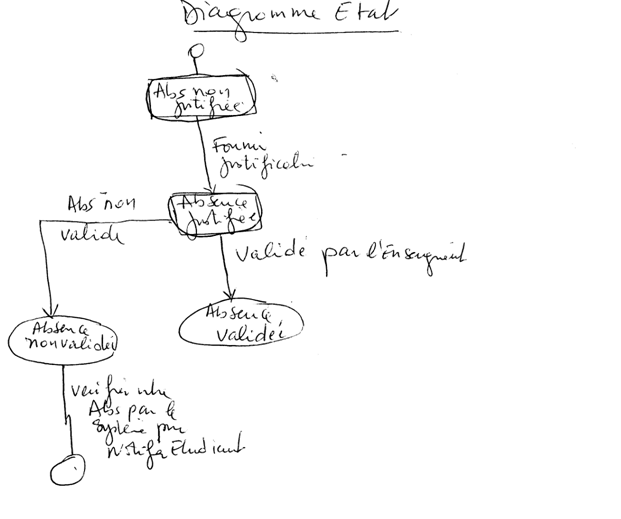 Diagramme Etat
Abs non
justifiée
Fourni
justificatif
Absence
justifiée
Abs non
valide
Validé par l'Enseignant
Absence
non validée
Absence
validée
verifier nbre
Abs par le
système pour
Notifier Etudiant